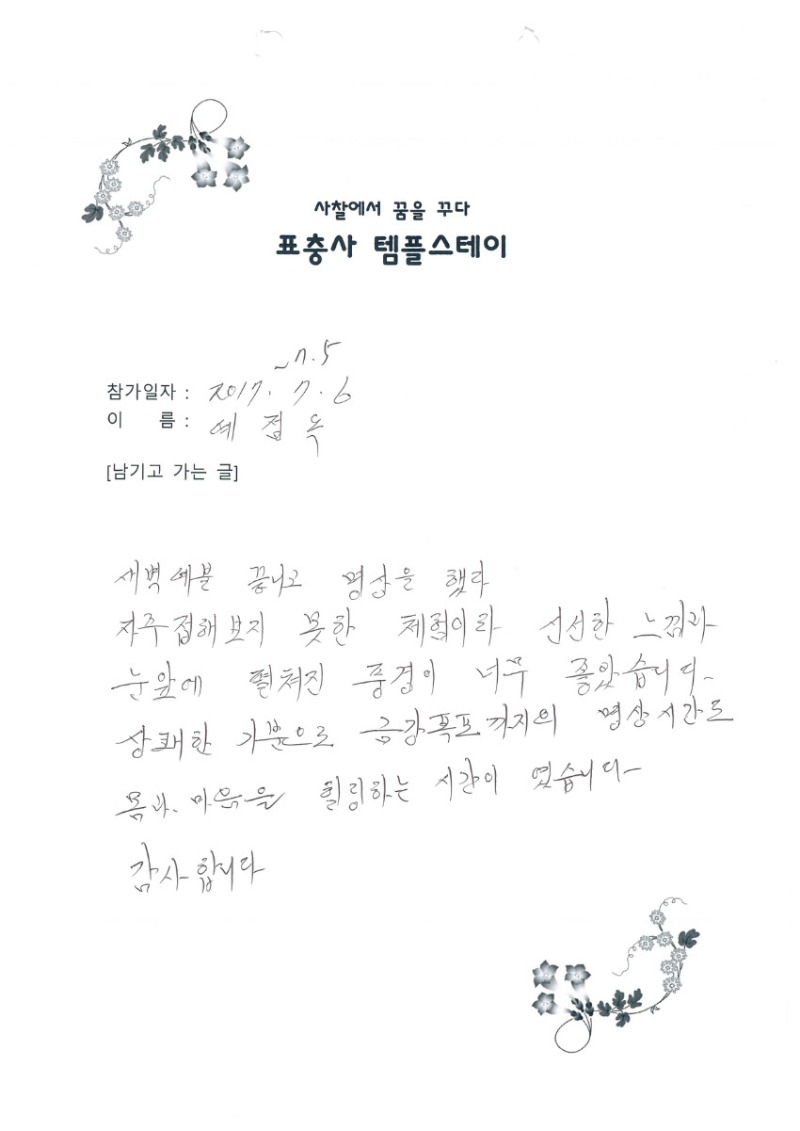 사찰에서 꿈을 꾸다
표충사 템플스테이
~7.5
참가일자 : 2017. 7. 6
이 름 : 예점옥
[남기고 가는 글]
새벽예불 끝나고 명상을 했다
자주접해보지 못한 체험이라 신선한 느낌과
눈앞에 펼쳐진 풍경이 너무 좋았습니다.
상쾌한 기분으로 금강폭포까지의 명상시간도
몸과. 마음을 힐링하는 시간이 였습니다-
감사합니다